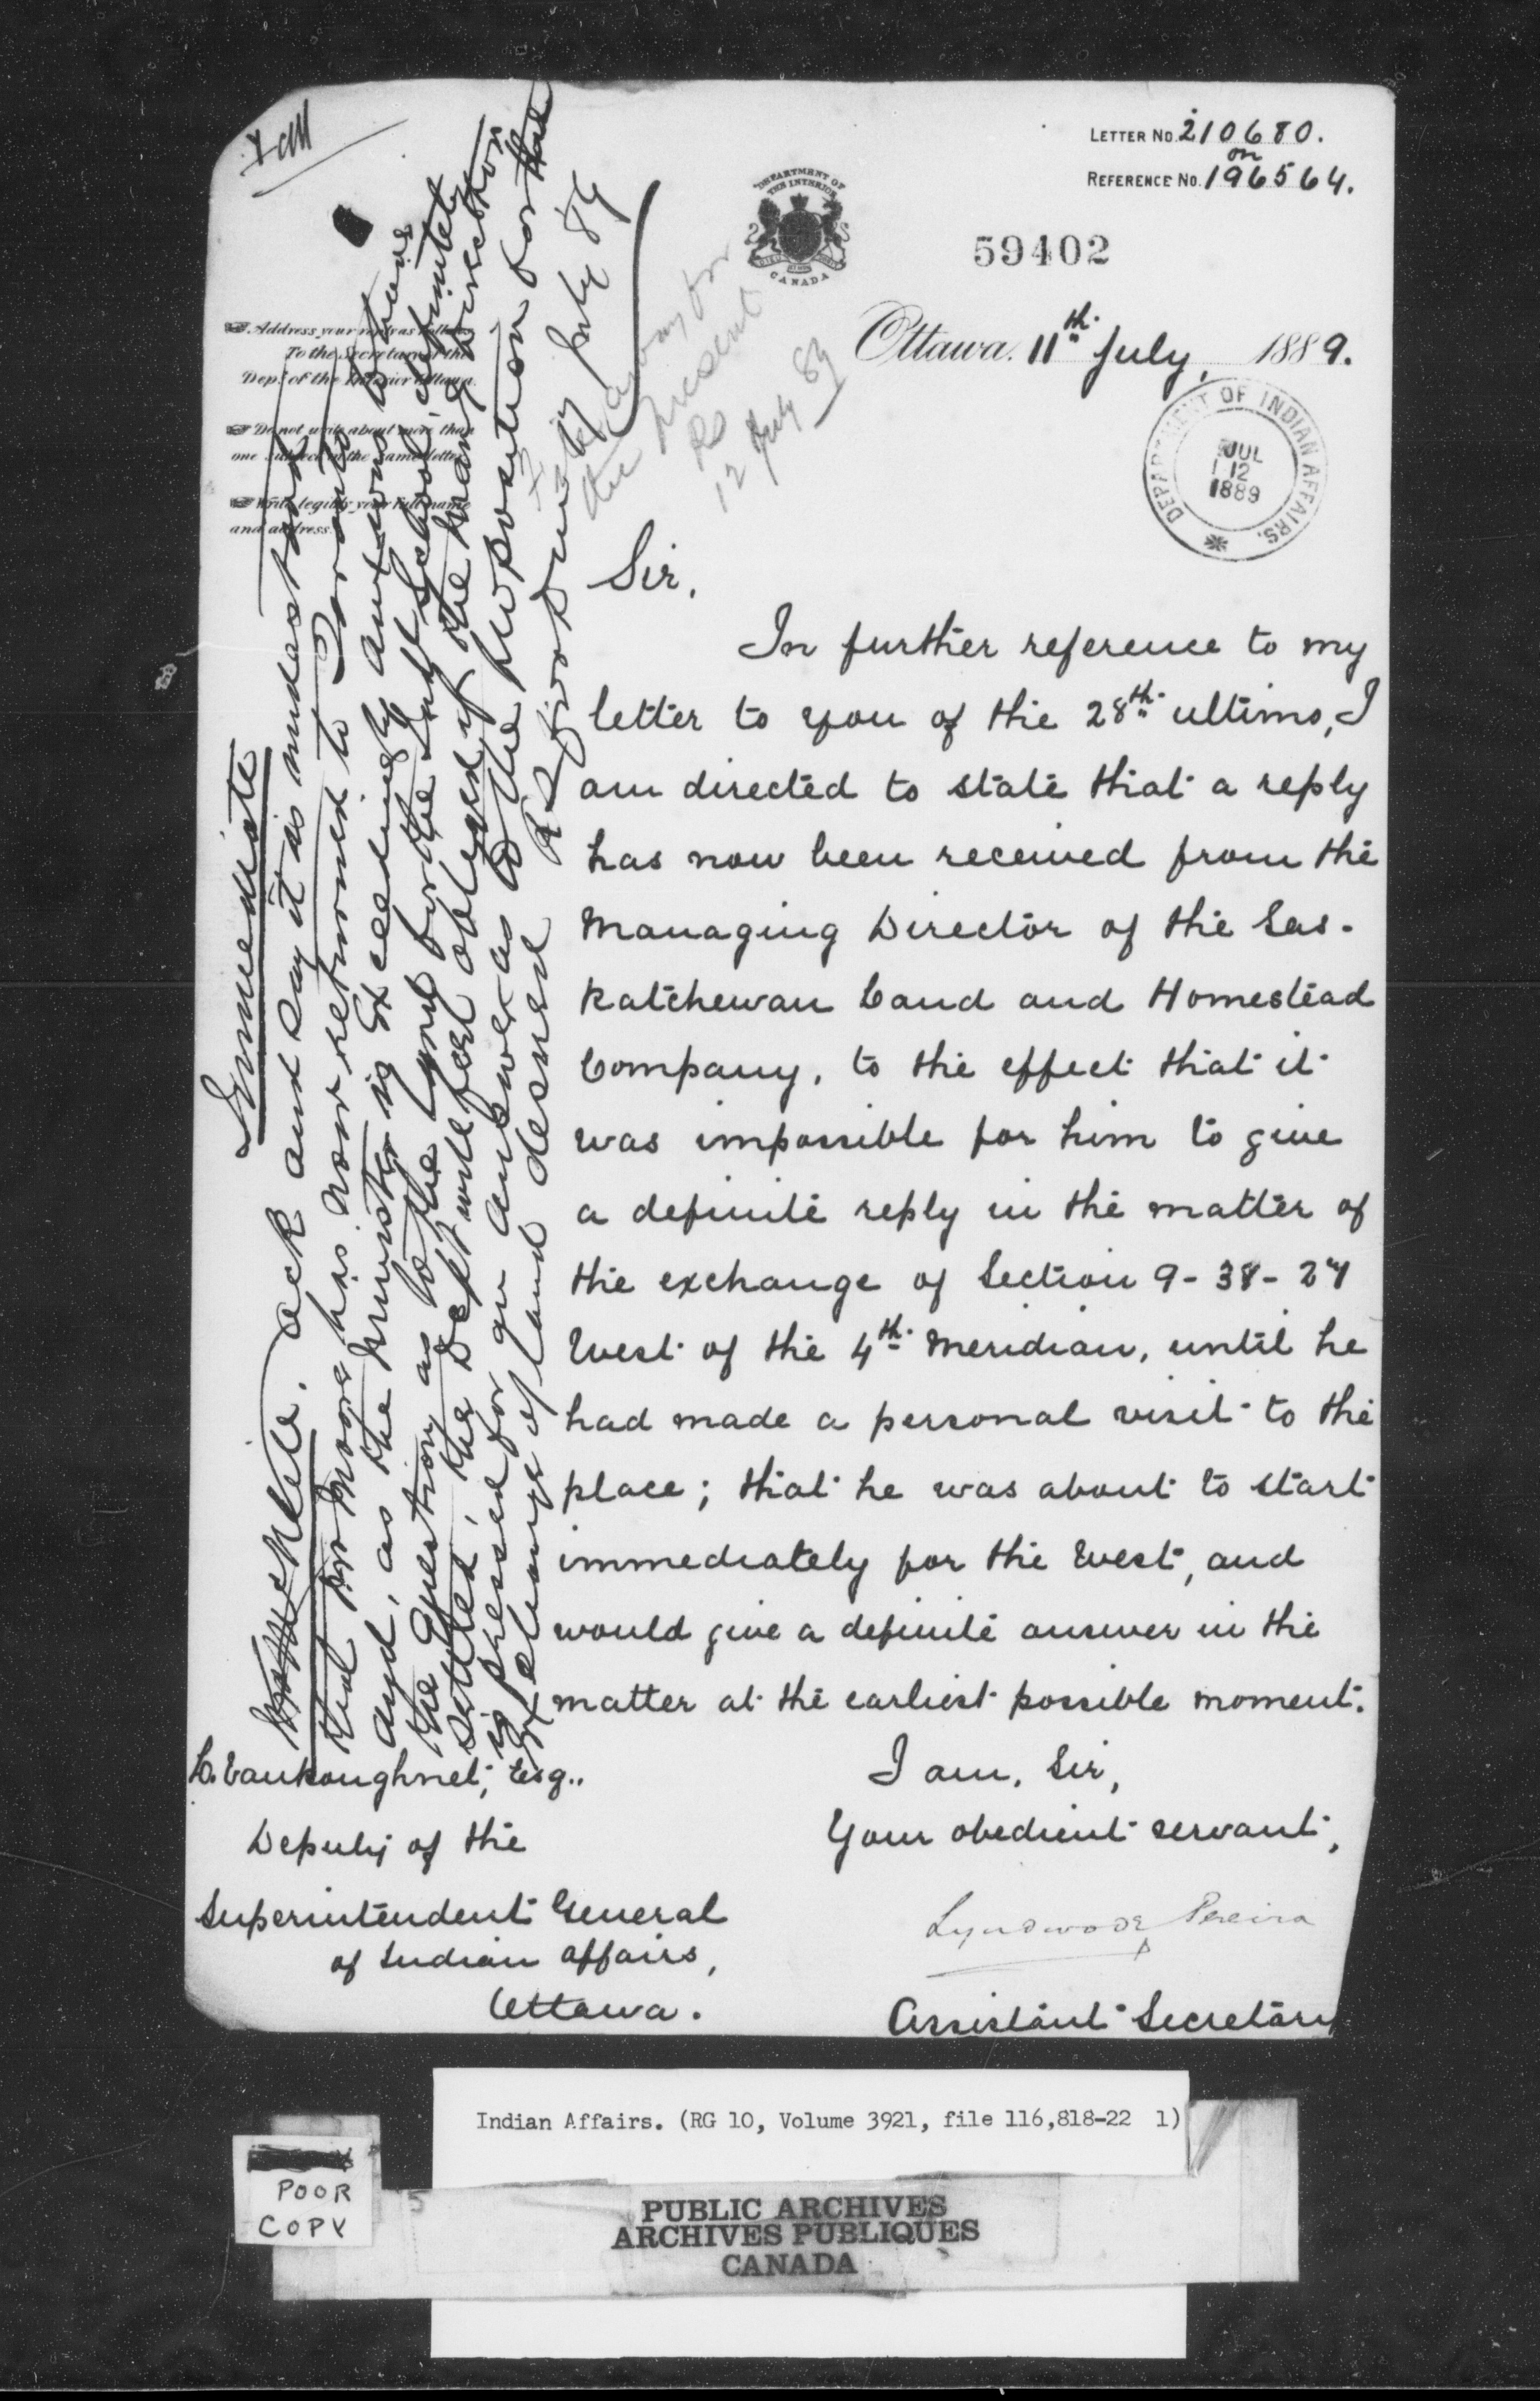 LETTER No. 210680.
on
REFERENCE No. 196564.
DEPARTMENT OF
THE INTERIOR
CANADA
59402
Address your reply as follows:
To the Secretary of the
Dept. of the Interior Ottawa.
Do not write about more than
one subject in the same letter.
Write legibly your full name
and address.
Ottawa. 11th. July, 1889.
DEPARTMENT OF INDIAN AFFAIRS.
JUL
12
1889
Sir,
In further reference to my
letter to you of the 28th. ultimo, I
am directed to state that a reply
has now been received from the
Managing Director of the Sas-
katchewan Land and Homestead
Company, to the effect that it
was impossible for him to give
a definite reply in the matter of
the exchange of Section 9-38-27
West of the 4th. Meridian, until he
had made a personal visit to the
place; that he was about to start
immediately for the West, and
would give a definite answer in the
matter at the earliest possible moment.
I am, Sir,
Your obedient servant,
Lyndwode Pereira
Assistant Secretary
L. Vankoughnet, Esq.,
Deputy of the
Superintendent General
of Indian Affairs,
Ottawa.
Immediate
ack and say it is understood
that Mr Moore has now returned to Toronto
and, as the Minister is exceedingly anxious to have
the question as to the land for the Indl School definitely
settled, the Dept will feel obliged if the Managing Director
is pressed for an answer as to the proposition for the
exchange of land desired
July 89
away for
the present
12 July 89
Indian Affairs. (RG 10, Volume 3921, file 116,818-22 1)
POOR
COPY
5
PUBLIC ARCHIVES
ARCHIVES PUBLIQUES
CANADA